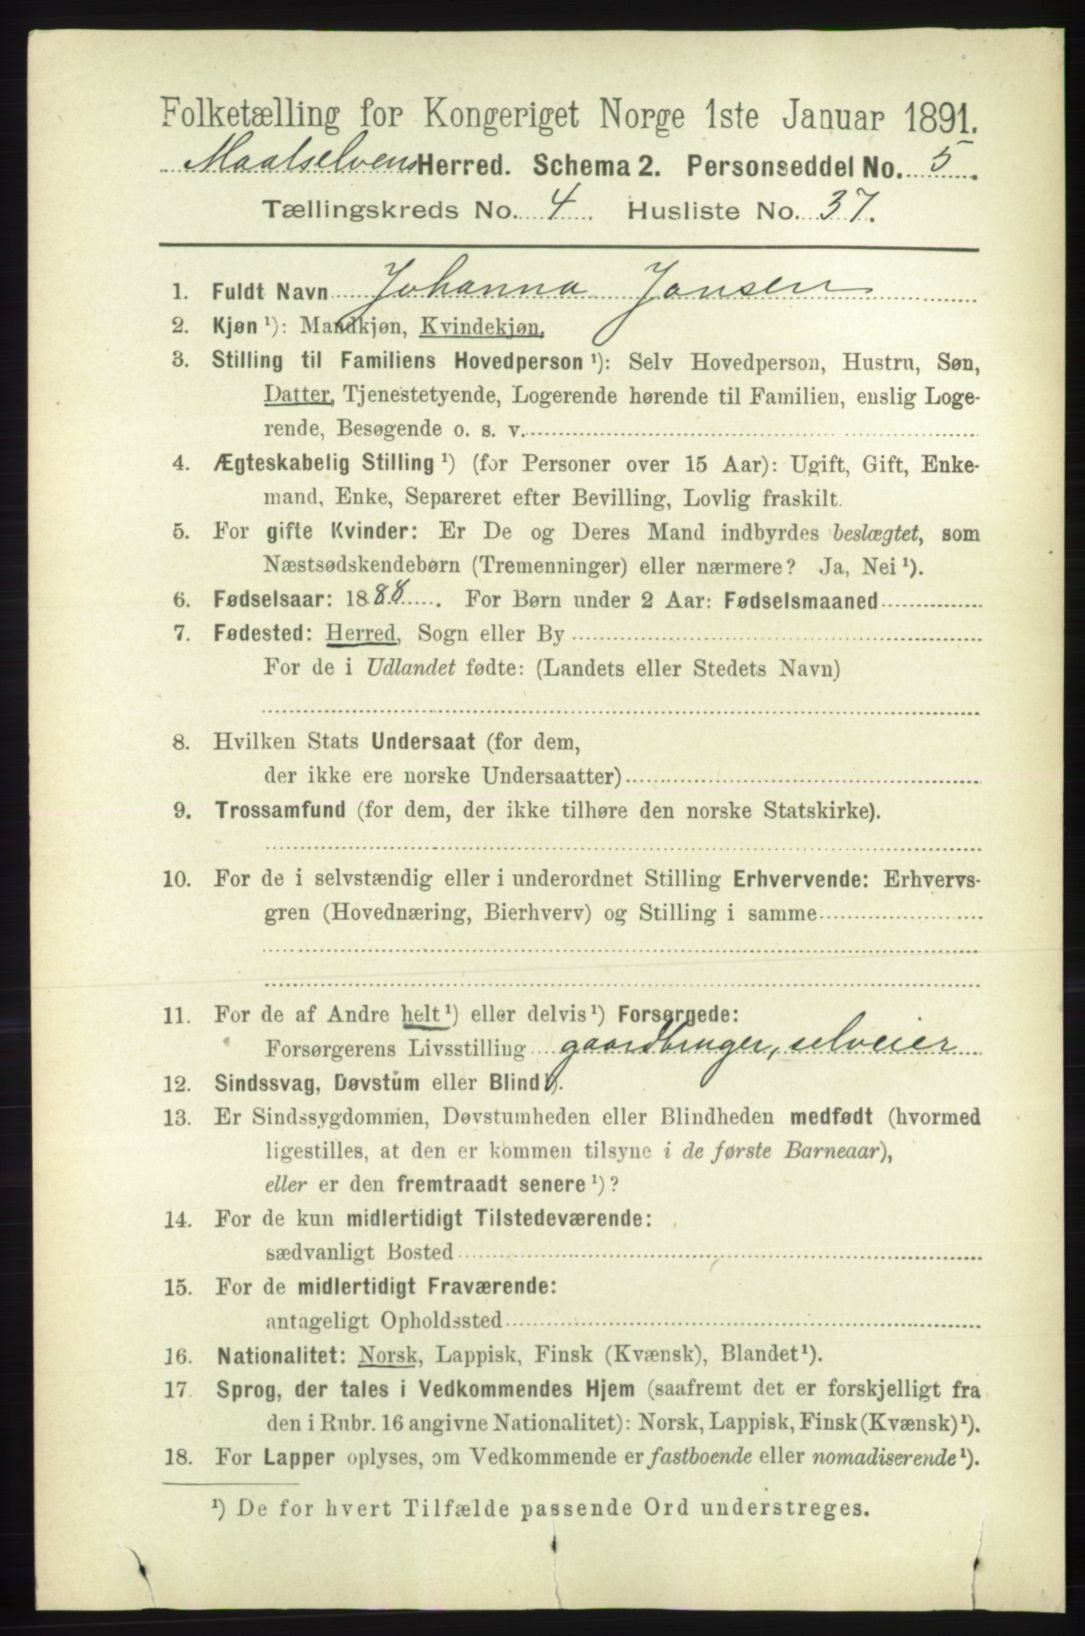 Folketælling for Kongeriget Norge 1ste Januar 1891.
Maalselvens Herred. Schema 2. Personseddel No. 5.
Tællingskreds No. 4. Husliste No. 37.
1. Fuldt Navn Johanna Jansen
2. Kjøn ¹): Mandkjøn, Kvindekjøn.
3. Stilling til Familiens Hovedperson ¹): Selv Hovedperson, Hustru, Søn,
Datter, Tjenestetyende, Logerende hørende til Familien, enslig Loge-
rende, Besøgende o. s. v.
4. Ægteskabelig Stilling ¹) (for Personer over 15 Aar): Ugift, Gift, Enke-
mand, Enke, Separeret efter Bevilling, Lovlig fraskilt.
5. For gifte Kvinder: Er De og Deres Mand indbyrdes beslægtet, som
Næstsødskendebørn (Tremenninger) eller nærmere? Ja, Nei ¹).
6. Fødselsaar: 1888. For Børn under 2 Aar: Fødselsmaaned
7. Fødested: Herred, Sogn eller By
For de i Udlandet fødte: (Landets eller Stedets Navn)
8. Hvilken Stats Undersaat (for dem,
der ikke ere norske Undersaatter)
9. Trossamfund (for dem, der ikke tilhøre den norske Statskirke).
10. For de i selvstændig eller i underordnet Stilling Erhvervende: Erhvervs-
gren (Hovednæring, Bierhverv) og Stilling i samme
11. For de af Andre helt ¹) eller delvis ¹) Forsørgede:
Forsørgerens Livsstilling gaardbruger, selveier
12. Sindssvag, Døvstum eller Blind ¹).
13. Er Sindssygdommen, Døvstumheden eller Blindheden medfødt (hvormed
ligestilles, at den er kommen tilsyne i de første Barneaar),
eller er den fremtraadt senere ¹)?
14. For de kun midlertidigt Tilstedeværende:
sædvanligt Bosted
15. For de midlertidigt Fraværende:
antageligt Opholdssted
16. Nationalitet: Norsk, Lappisk, Finsk (Kvænsk), Blandet ¹).
17. Sprog, der tales i Vedkommendes Hjem (saafremt det er forskjelligt fra
den i Rubr. 16 angivne Nationalitet): Norsk, Lappisk, Finsk (Kvænsk) ¹).
18. For Lapper oplyses, om Vedkommende er fastboende eller nomadiserende ¹).
¹) De for hvert Tilfælde passende Ord understreges.